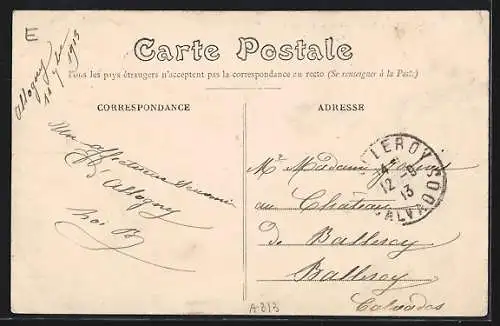 E
Allogny
1913
Carte Postale
Tous les pays étrangers n'acceptent pas la correspondance au recto (Se renseigner à la Poste)
CORRESPONDANCE
ADRESSE
d'Allogny
BALLEROY
14
12-9
13
CALVADOS
Mr Madame
au Château
de Balleroy
Balleroy
Calvados
A 213